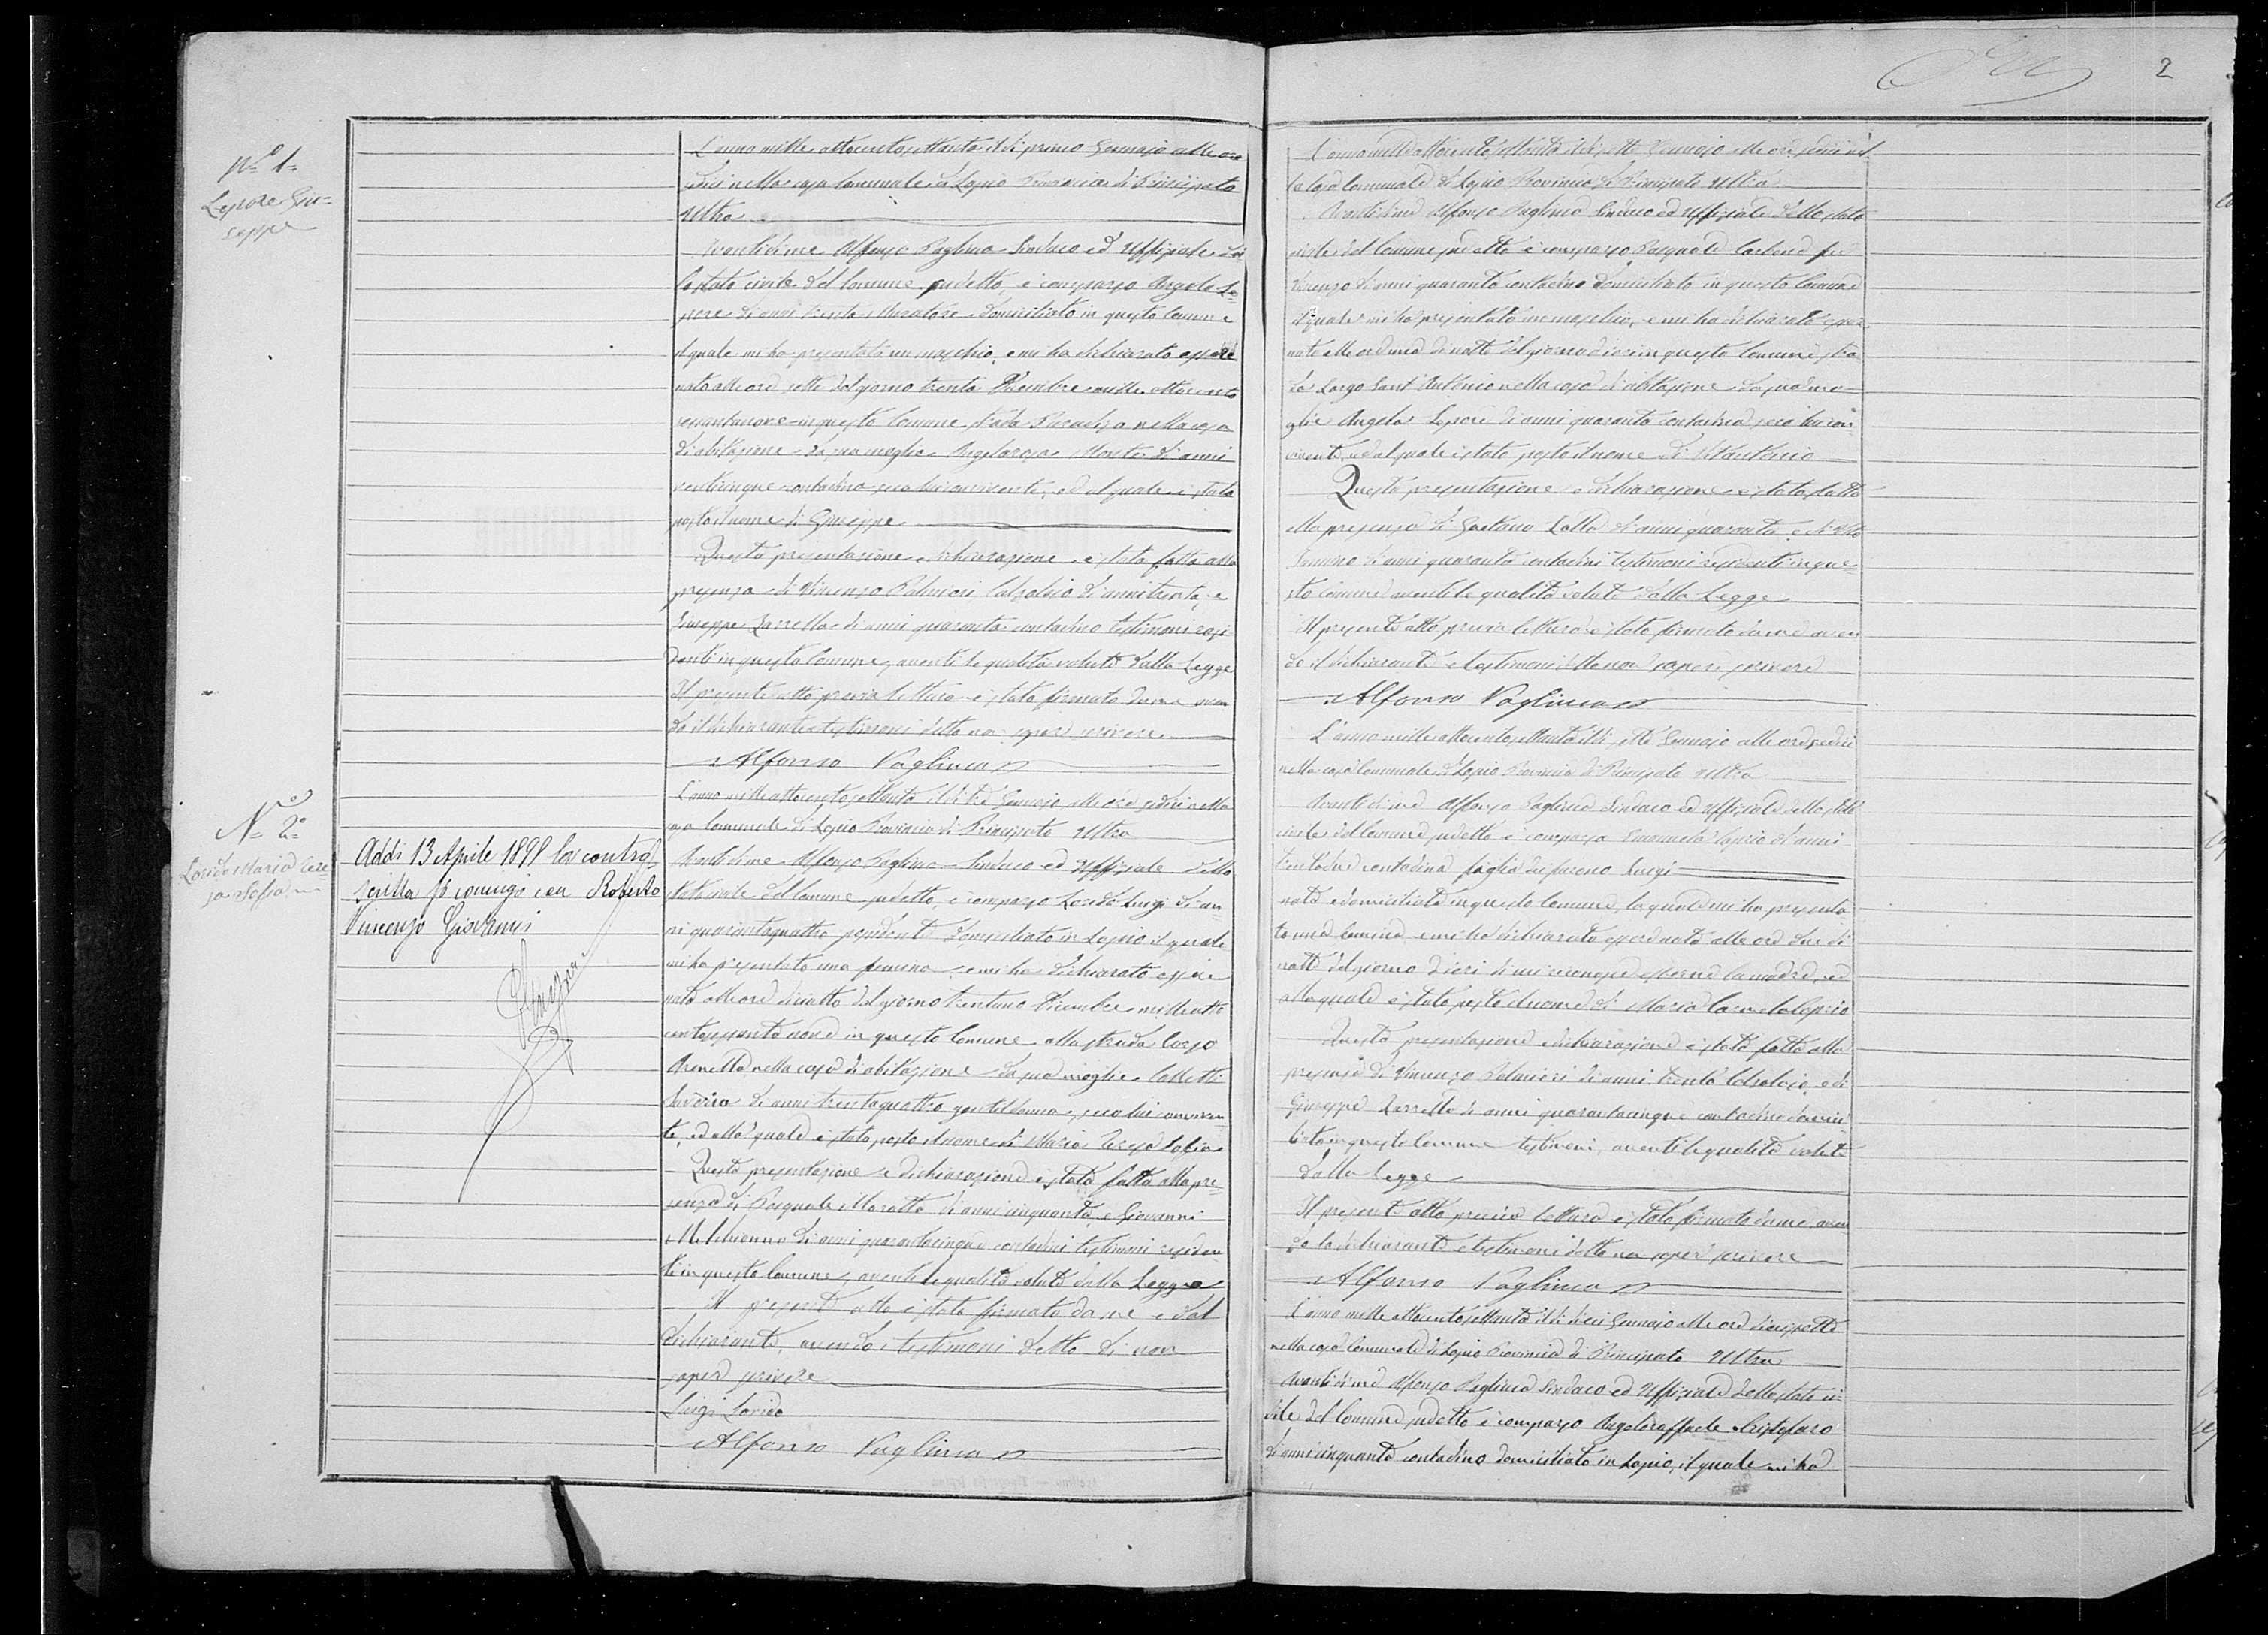 2
N.º 1º
Lepore Giu=
seppe
L'anno mille ottocento settanta il dì primo Gennajo alle ore
sedici nella casa Comunale di Lapio Provincia di Principato
Ultra
Avanti di me Alfonso Vagliuca Sindaco ed Uffiziale del
lo stato civile del Comune sudetto, è comparso Angelo Le=
pore di anni trenta Muratore domiciliato in questo Comune
il quale mi ha presentato un maschio, e mi ha dichiarato essere
nato alle ore sette del giorno trenta Dicembre mille ottocento
sessantanove in questo Comune strada nella casa
di abitazione da sua moglie Angelarosa Monte di anni
venticinque contadina seco lui convivente, ed al quale è stato
posto il nome di Giuseppe
Questa presentazione e dichiarazione è stata fatta alla
presenza di Vincenzo Palmieri Calzolaio di anni trenta, e
Giuseppe Zarrella di anni quaranta contadino testimoni resi
denti in questo Comune, aventi le qualità volute dalla Legge
Il presente atto previa lettura è stato firmato da me aven
do il dichiarante e testimoni detto non sapere scrivere
Alfonso Vagliuca
N.º 2º
Lorido Maria Tere=
sa Sofia
Addì 13 Aprile 1899 la contro=
scritta si coniugò con Roberto
Vincenzo Giovanni
L'anno mille ottocento settanta il dì tre Gennajo alle ore sedici nella
casa Comunale di Lapio Provincia di Principato Ultra
Avanti di me Alfonso Vagliuca Sindaco ed Uffiziale dello
stato civile del Comune sudetto, è comparso Lorido Luigi di an=
ni quarantaquattro possidente domiciliato in Lapio il quale
mi ha presentato una femina, e mi ha dichiarato essere
nata alle ore diciotto del giorno trentuno Dicembre mille otto
centosessanta nove in questo Comune alla strada Largo
nella casa di abitazione da sua moglie
Saveria di anni trentaquattro gentildonna, seco lui conviven
te, ed alla quale è stato posto il nome di Maria Teresa Sofia
Questa presentazione e dichiarazione è stata fatta alla pre=
senza di Pasquale di anni cinquanta, e Giovanni
di anni quarantacinque contadini testimoni residen
ti in questo Comune, aventi le qualità volute dalla Legge
Il presente atto è stato firmato da me e dal
dichiarante, avendo i testimoni detto di non
sapere scrivere
Luigi Lorido
Alfonso Vagliuca
L'anno mille ottocento settanta il dì sette Gennajo alle ore sedici nel
la casa Comunale di Lapio Provincia di Principato Ultra
Avanti di me Alfonso Vagliuca Sindaco ed Uffiziale dello stato
civile del Comune sudetto è comparso Pasquale Carbone fu
Vincenzo di anni quaranta contadino domiciliato in questo Comune
il quale mi ha presentato un maschio, e mi ha dichiarato esser
nato alle ore una di notte del giorno di ieri in questo Comune stra
da Largo Sant'Antonio nella casa di abitazione da sua mo=
glie Angela Lepore di anni quaranta contadina seco lui con
vivente, ed al quale è stato posto il nome di Vitantonio
Questa presentazione e dichiarazione è stata fatta
alla presenza di Gaetano di anni quaranta, e di Vito
di anni quaranta contadini testimoni residenti in que=
sto Comune aventi le qualità volute dalla Legge
Il presente atto previa lettura è stato firmato da me aven
do il dichiarante e testimoni detto non sapere scrivere
Alfonso Vagliuca
L'anno mille ottocento settanta il dì otto Gennajo alle ore sedici
nella casa Comunale di Lapio Provincia di Principato Ultra
Avanti di me Alfonso Vagliuca Sindaco ed Uffiziale dello stato
civile del Comune sudetto è comparsa Emanuela Caprio di anni
contadina figlia di Luigi
nata e domiciliata in questo Comune, la quale mi ha presenta
to una femina, e mi ha dichiarato essere nata alle ore due di
notte del giorno di ieri la madre, ed
alla quale è stato posto il nome di Maria Carmela Caprio
Questa presentazione e dichiarazione è stata fatta alla
presenza di Vincenzo Palmieri di anni trenta Calzolaio, e di
Giuseppe Zarrella di anni quarantacinque contadino domici
liati in questo Comune testimoni, aventi le qualità volute
dalla Legge
Il presente atto previa lettura è stato firmato da me aven
do la dichiarante e testimoni detto non sapere scrivere
Alfonso Vagliuca
L'anno mille ottocento settanta il dì dieci Gennajo alle ore diciasette
nella casa Comunale di Lapio Provincia di Principato Ultra
Avanti di me Alfonso Vagliuca Sindaco ed Uffiziale dello stato ci=
vile del Comune sudetto è comparso Angeloraffaele Cristofaro
di anni cinquanta contadino domiciliato in Lapio, il quale mi ha